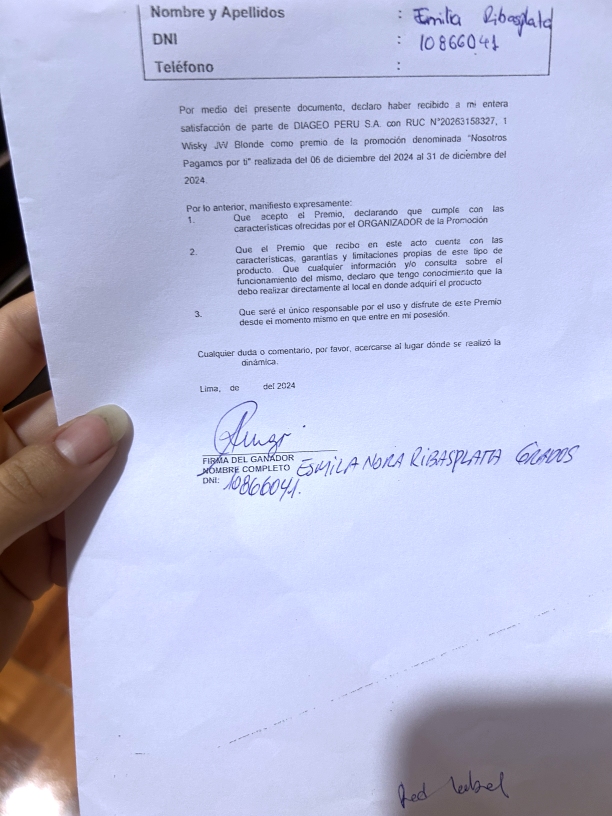 Nombre y Apellidos : Emilia Ribasplata
DNI : 10866041
Teléfono :
Por medio del presente documento, declaro haber recibido a mi entera
satisfacción de parte de DIAGEO PERU S.A. con RUC N°20263158327, 1
Wisky JW Blonde como premio de la promoción denominada "Nosotros
Pagamos por ti" realizada del 06 de diciembre del 2024 al 31 de diciembre del
2024.
Por lo anterior, manifiesto expresamente:
1. Que acepto el Premio, declarando que cumple con las
características ofrecidas por el ORGANIZADOR de la Promoción
2. Que el Premio que recibo en este acto cuenta con las
características, garantías y limitaciones propias de este tipo de
producto. Que cualquier información y/o consulta sobre el
funcionamiento del mismo, declaro que tengo conocimiento que la
debo realizar directamente al local en donde adquirí el producto
3. Que seré el único responsable por el uso y disfrute de este Premio
desde el momento mismo en que entre en mi posesión.
Cualquier duda o comentario, por favor, acercarse al lugar dónde se realizó la
dinámica.
Lima, de del 2024
FIRMA DEL GANADOR
NOMBRE COMPLETO ESMILA NORA RIBASPLATA GRADOS
DNI: 10866041.
Red Label